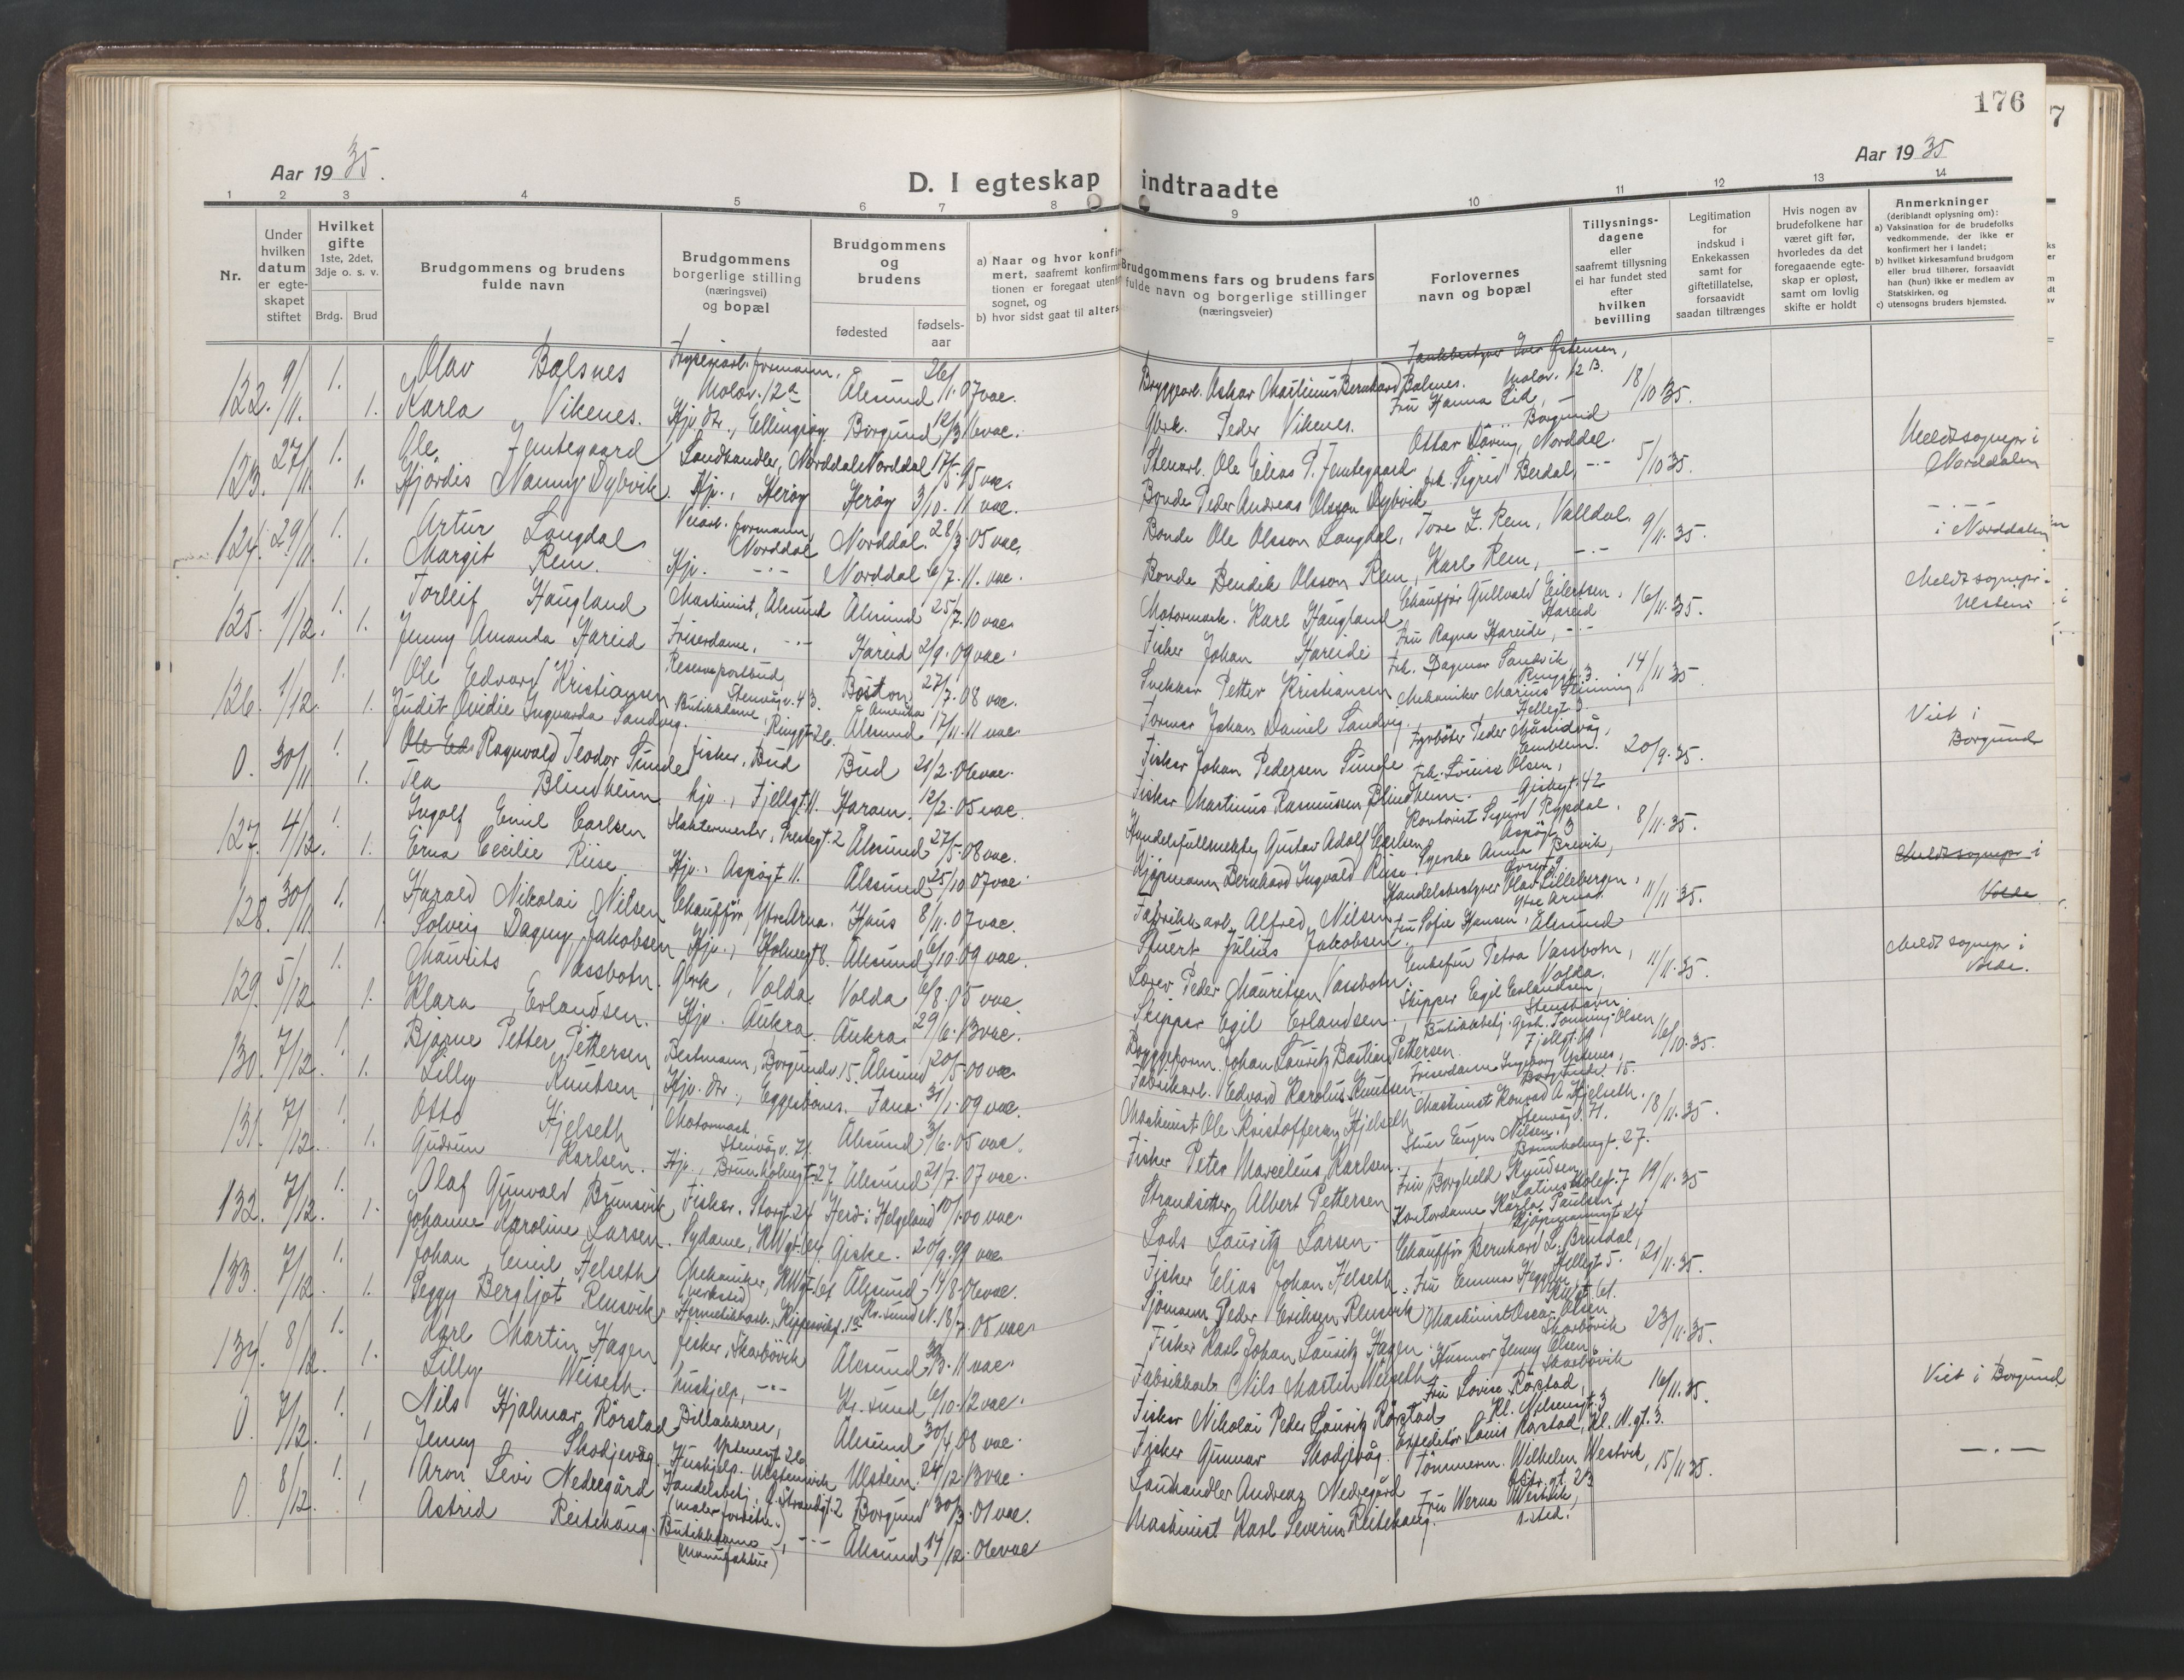 176
Aar 1935.
D. I egteskap indtraadte
Aar 1935
1 2 3 4 5 6 7 8 9 10 11 12 13 14
Nr.
Under hvilken datum er egte-skapet stiftet
Hvilket gifte 1ste, 2det, 3dje o. s. v.
Brdg. Brud
Brudgommens og brudens fulde navn
Brudgommens borgerlige stilling (næringsvei) og bopæl
Brudgommens og brudens
fødested
fødsels-aar
a) Naar og hvor konfir
mert, saafremt konfirm
tionen er foregaat uten
sognet, og
b) hvor sidst gaat til alters
Brudgommens fars og brudens fars fulde navn og borgerlige stillinger (næringsveier)
Forlovernes navn og bopæl
Tillysnings-dagene eller saafremt tillysning ei har fundet sted efter hvilken bevilling
Legitimation for indskud i Enkekassen samt for giftetillatelse, forsaavidt saadan tiltrænges
Hvis nogen av brudefolkene har været gift før, hvorledes da det foregaaende egte-skap er opløst, samt om lovlig skifte er holdt
Anmerkninger
(deriblandt oplysning om):
a) Vaksination for de brudefolks vedkommende, der ikke er konfirmert her i landet;
b) hvilket kirkesamfund brudgom eller brud tilhører, forsaavidt han (hun) ikke er medlem av Statskirken, og
c) utensogns bruders hjemsted.
122. 9/11. 1. Olav Balsnes formann, Molov. 12a Ålesund 26/11. 07 vac. Bryggearb. Oskar Martinus Bernhard Balsnes. Iver Østensen, Molov. 12 B. 18/10 35.
1. Karla Vikenes. Hj. dtr., Ellingsøy. Borgund 12/3 16 vac. Gbrk. Peder Vikenes. Fru Hanna Lid, Borgund
123. 27/11. 1. Ole Jemtegaard Landhandler, Norddal Norddal 17/5. 95 vac. Stenarb. Ole Elias P. Jemtegaard Ottar Döving, Norddal. 5/10 35. Meldt sognepr i Norddalen
1. Hjördis Nanny Dybvik. Hj., Heröy Heröy 3/10. 11 vac. Bonde Peder Andreas Olsson Dybvik frk. Sigrid Berdal, -"-
124. 29/11. 1. Artur Langdal Veiarb. formann, Norddal Norddal. 28/3. 05 vac. Bonde Ole Olsson Langdal, Tore L. Rem, Valldal. 9/11. 35. -"- i Norddalen
1. Margit Rem. Hj. -"- Norddal 6/7. 11. vac. Bonde Bendik Olsson Rem, Karl Rem, -"-
125. 1/12. 1. Torleif Haugland Maskinist, Ålesund Ålesund 25/7. 10 vac. Motormask. Karl Haugland Chauffør Gullvald Eilertsen, Hareid 16/11. 35. Meldt sognepr. i Ulstein
1. Jenny Amanda Hareid Friserdame, -"- Hareid 2/9. 09 vac. Fisker Johan Hareide Fru Ragna Hareide, -"-
126. 1/12. 1. Ole Edvard Kristiansen Reservepostbud, Stenvågv. 43. Boston Amerika 27/7. 08 vac. Snekker Petter Kristiansen Frk. Dagmar Sandvik, Ringgt 3. 14/11 35
1. Judit Ovidie Ingvarda Sandvig. Butikkdame, Ringgt 26. Ålesund 17/11. 11 vac. Former Johan Daniel Sandvig. Mekaniker Marius
0. 30/11 1. Ragnvald Teodor Sunde fisker, Bud Bud 21/2. 06 vac. Fisker Johan Pedersen Sunde Fyrböter Peder Måseidvåg, Emblem. 20/9. 35. Viet i Borgund
1. Tea Blindheim. hj., Fjellgt. 11. Haram. 12/2. 05 vac. Fisker Martinus Rasmussen Blindheim. Frk. Louise Olsen, Giskegt. 42
127. 4/12. 1. Ingolf Emil Carlsen Slaktermester, Prestegt. 2 Ålesund 27/5. 08 vac. Handelsfullmektig Gustav Adolf Carlsen Kontorist Sigurd Rypdal, Aspögt 3 8/11. 35.
1. Erna Cecilie Riise Hj., Aspögt 11. Ålesund 25/10 07 vac. Kjöpmann Bernhard Ingvald Riise. Anna Brevik,
128. 30/11. 1. Harald Nikolai Nilsen Chauffør, Ytre Arna. Haus 8/11. 07 vac. Fabrikkarb. Alfred Nilsen Handelsbestyrer Olav Lillebergen, Ytre Arna. 11/11. 35. Meldt sognepr i Volda
1. Solveig Dagny Jakobsen Hj., Holmegt 8. Ålesund 6/10. 09 vac. Stuert Julius Jakobsen. Fru Sofie Hansen, Ålesund
129. 5/12 1. Maurits Vassbotn. Gbrk, Volda Volda 6/8. 05 vac Lærer Peder Mauritsen Vassbotn. Enkefru Petra Vassbotn, Volda. 11/11. 35. Meldt sognepr i Volda.
1. Klara Erlandsen. Hj. Aukra Aukra. 29/6. 13 vac. Skipper Egil Erlandsen. Skipper Egil Erlandsen, Stenshavn
130. 7/12. 1. Bjarne Petter Pettersen Bestmann, Borgundv. 15. Ålesund 20/5 00 vac. Bryggeform. Johan Lauritz Bastian Pettersen. Butikkbetj. Olsen Fjellgt. 19 16/10. 35.
1. Lilly Knutsen Hj. dtr., Eggesbönes. Fana. 31/1. 09 vac. Fabrikarb. Edvard Karolus Knutsen. Friserdame Ingeborg Ystenes, Borgundv. 15.
131. 7/12. 1. Otto Hjelseth Motormask. Stenvågv. 71. Ålesund 3/6. 05 vac. Maskinist Ole Kristoffersen Hjelseth Maskinist Konrad A. Hjelseth. Stenvåg. 71. 18/11. 35.
1. Gudrun Karlsen. Hj., Brunholmgt. 27 Ålesund 21/7. 07 vac. Fisker Peter Marcelius Karlsen. Stuer Eugen Nilsen, Brunholmgt. 27.
132. 7/12. 1. Olaf Gunvald Brunsvik Fisker, Storgt. 24 Herö i Helgeland 10/1. 00 vac. Strandsitter Albert Pettersen Fru Borghild Knudsen 19/11. 35
1. Johanne Karoline Larsen. Sydame, KWgt. 64. Giske. 20/9. 99 vac Lods Lauritz Larsen. Kontordame Karla Paulsen, Kjöpmannsgt 24
133. 7/12. 1. Johan Emil Helseth Mekaniker, KWgt 61 (verksted) Ålesund 14/8. 06 vac. Fisker Elias Johan Helseth. Chauffør Bernhard L. Brusdal, Fjellegt 5. 21/11. 35.
1. Peggy Bergljot Rensvik Hermetikkarb., 1a Kr. sund N. 18/7. 05 vac Sjömann Peder Eriksen Rensvik Fru Emma
134. 8/12. 1. Karl Martin Hagen fisker, Skarbövik Ålesund 11 vac. Fisker Karl Johan Lauritz Hagen Maskinist Oscar Olsen Skarbövik 23/11. 35.
1. Lilly Weiseth. hushjelp, -"- Kr. sund 6/10. 12 vac. Fabrikkarb. Nils Martin Weiseth. Husmor Jenny Olsen Skarbövik
0. 7/12. 1. Nils Hjalmar Rörstad Billakkerer, Ystenesgt 26 Ålesund 30/4. 08 vac. Fisker Nikolai Peder Lauritz Rörstad Fru Lovise Rörstad, Kl. Nilsensgt. 3 16/11. 35. Viet i Borgund
1 Jenny Skodjevåg. Hushjelp. Ulsteinvik Ulstein. 24/12. 13 vac. Fisker Gunnar Skodjevåg. Expeditör Louis Rörstad, Kl. N. gt. 3.
0. 8/12. 1. Aron Levi Nedregård Handelsbetj. Strandgt. 2 Borgund 30/3. 01 vac. Landhandler Andreas Nedregård Tömmerm. Wilhelm Westvik, 15/11 35. -"-
1 Astrid Reitehaug. Butikkdame, (Manufaktur) -"- Ålesund 14/12. 06 vac Maskinist Karl Severin Reitehaug. Fru Werna Westvik, s. sted.